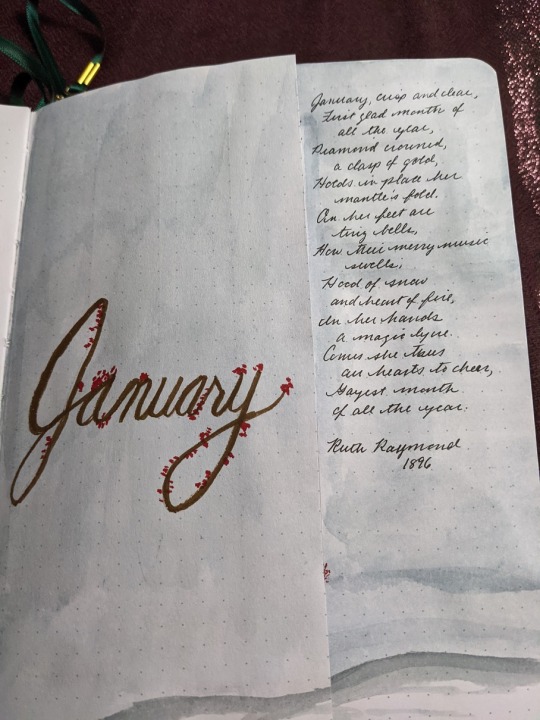 January
January, crisp and clear,
First glad month of
all the year,
Diamond crowned,
a clasp of gold,
Holds in place her
mantle's fold.
On her feet are
tiny bells,
How their merry music
swells;
Hood of snow
and heart of fire,
In her hands
a magic lyre.
Comes she thus
all hearts to cheer,
Gayest month
of all the year.
Ruth Raymond
1896